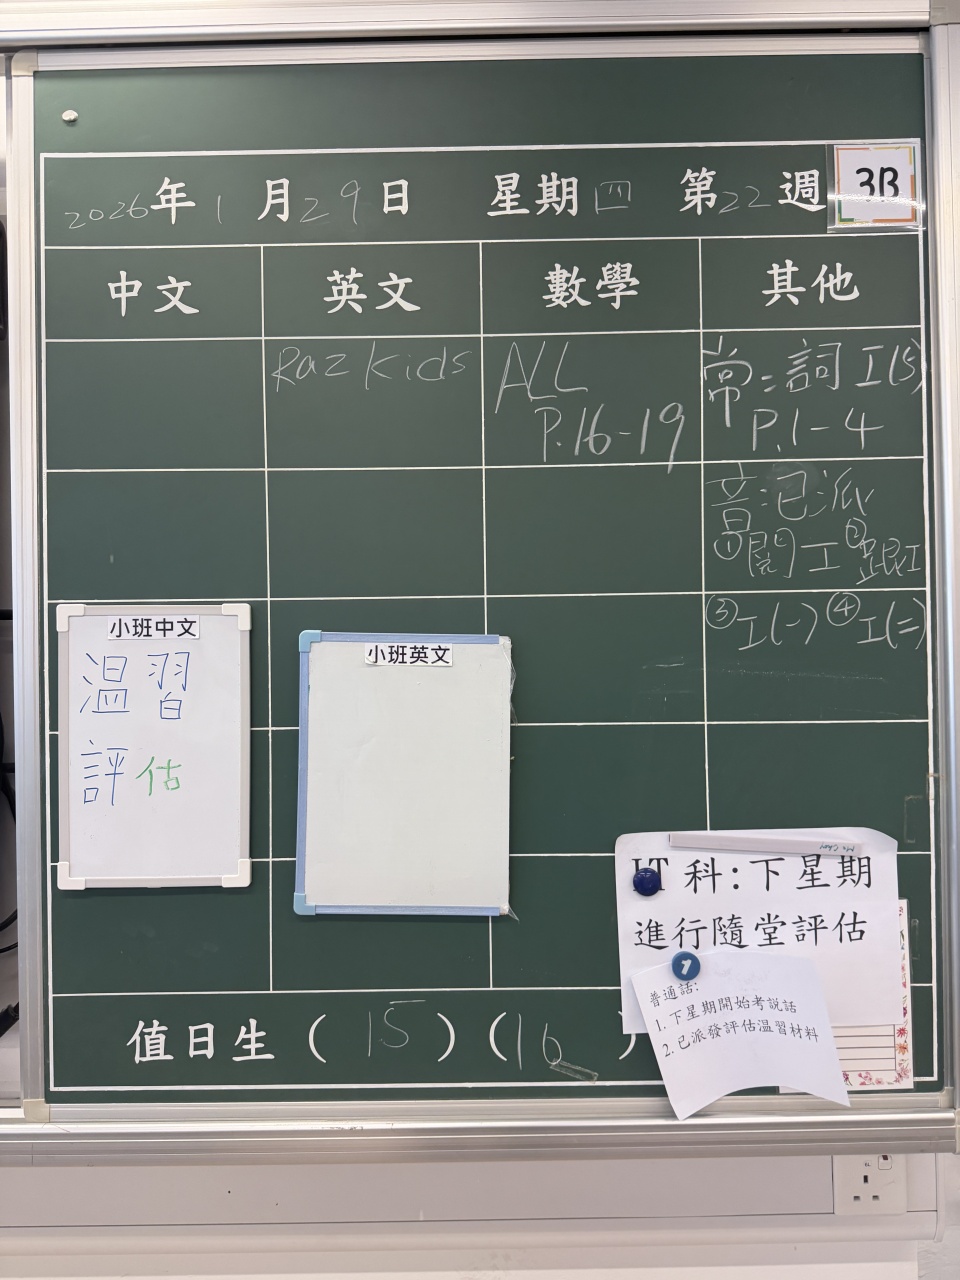 2026年1月29日 星期四 第22週 3B
中文 英文 數學 其他
Raz kids
ALL
P.16-19
常:詞工(5)
P.1-4
音:已派
①閱工②跟工
③工(一)④工(二)
小班中文
溫習
評估
小班英文
IT科:下星期
進行隨堂評估
普通話:
1. 下星期開始考説話
2. 已派發評估溫習材料
值日生(15)(16)